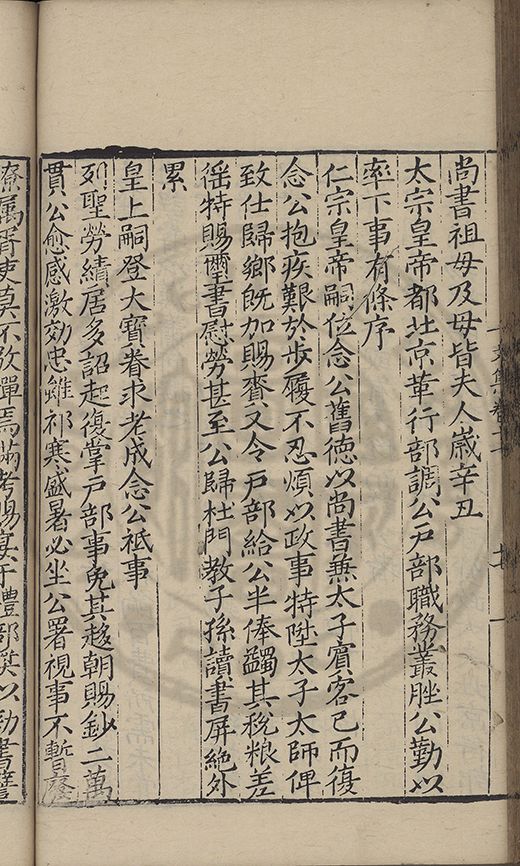 尚書祖母及母皆夫人歲辛丑
太宗皇帝都北京革行部調公戸部職務叢脞公勤以
率下事有條序
仁宗皇帝嗣位念公舊德以尚書兼太子賓客已而復
念公抱疾艱於步履不忍煩以政事特陞太子太師俾
致仕歸鄉既加賜賚又令戸部給公半俸蠲其稅粮差
徭特賜璽書慰勞甚至公歸杜門教子孫讀書屏絶外
累
皇上嗣登大寶眷求老成念公祗事
列聖勞績居多詔起復掌戸部事免其趍朝賜鈔二萬
貫公愈感激効忠雖祁寒盛暑必坐公署視事不暫廢
僚属胥吏莫不
滿考賜宴于禮部